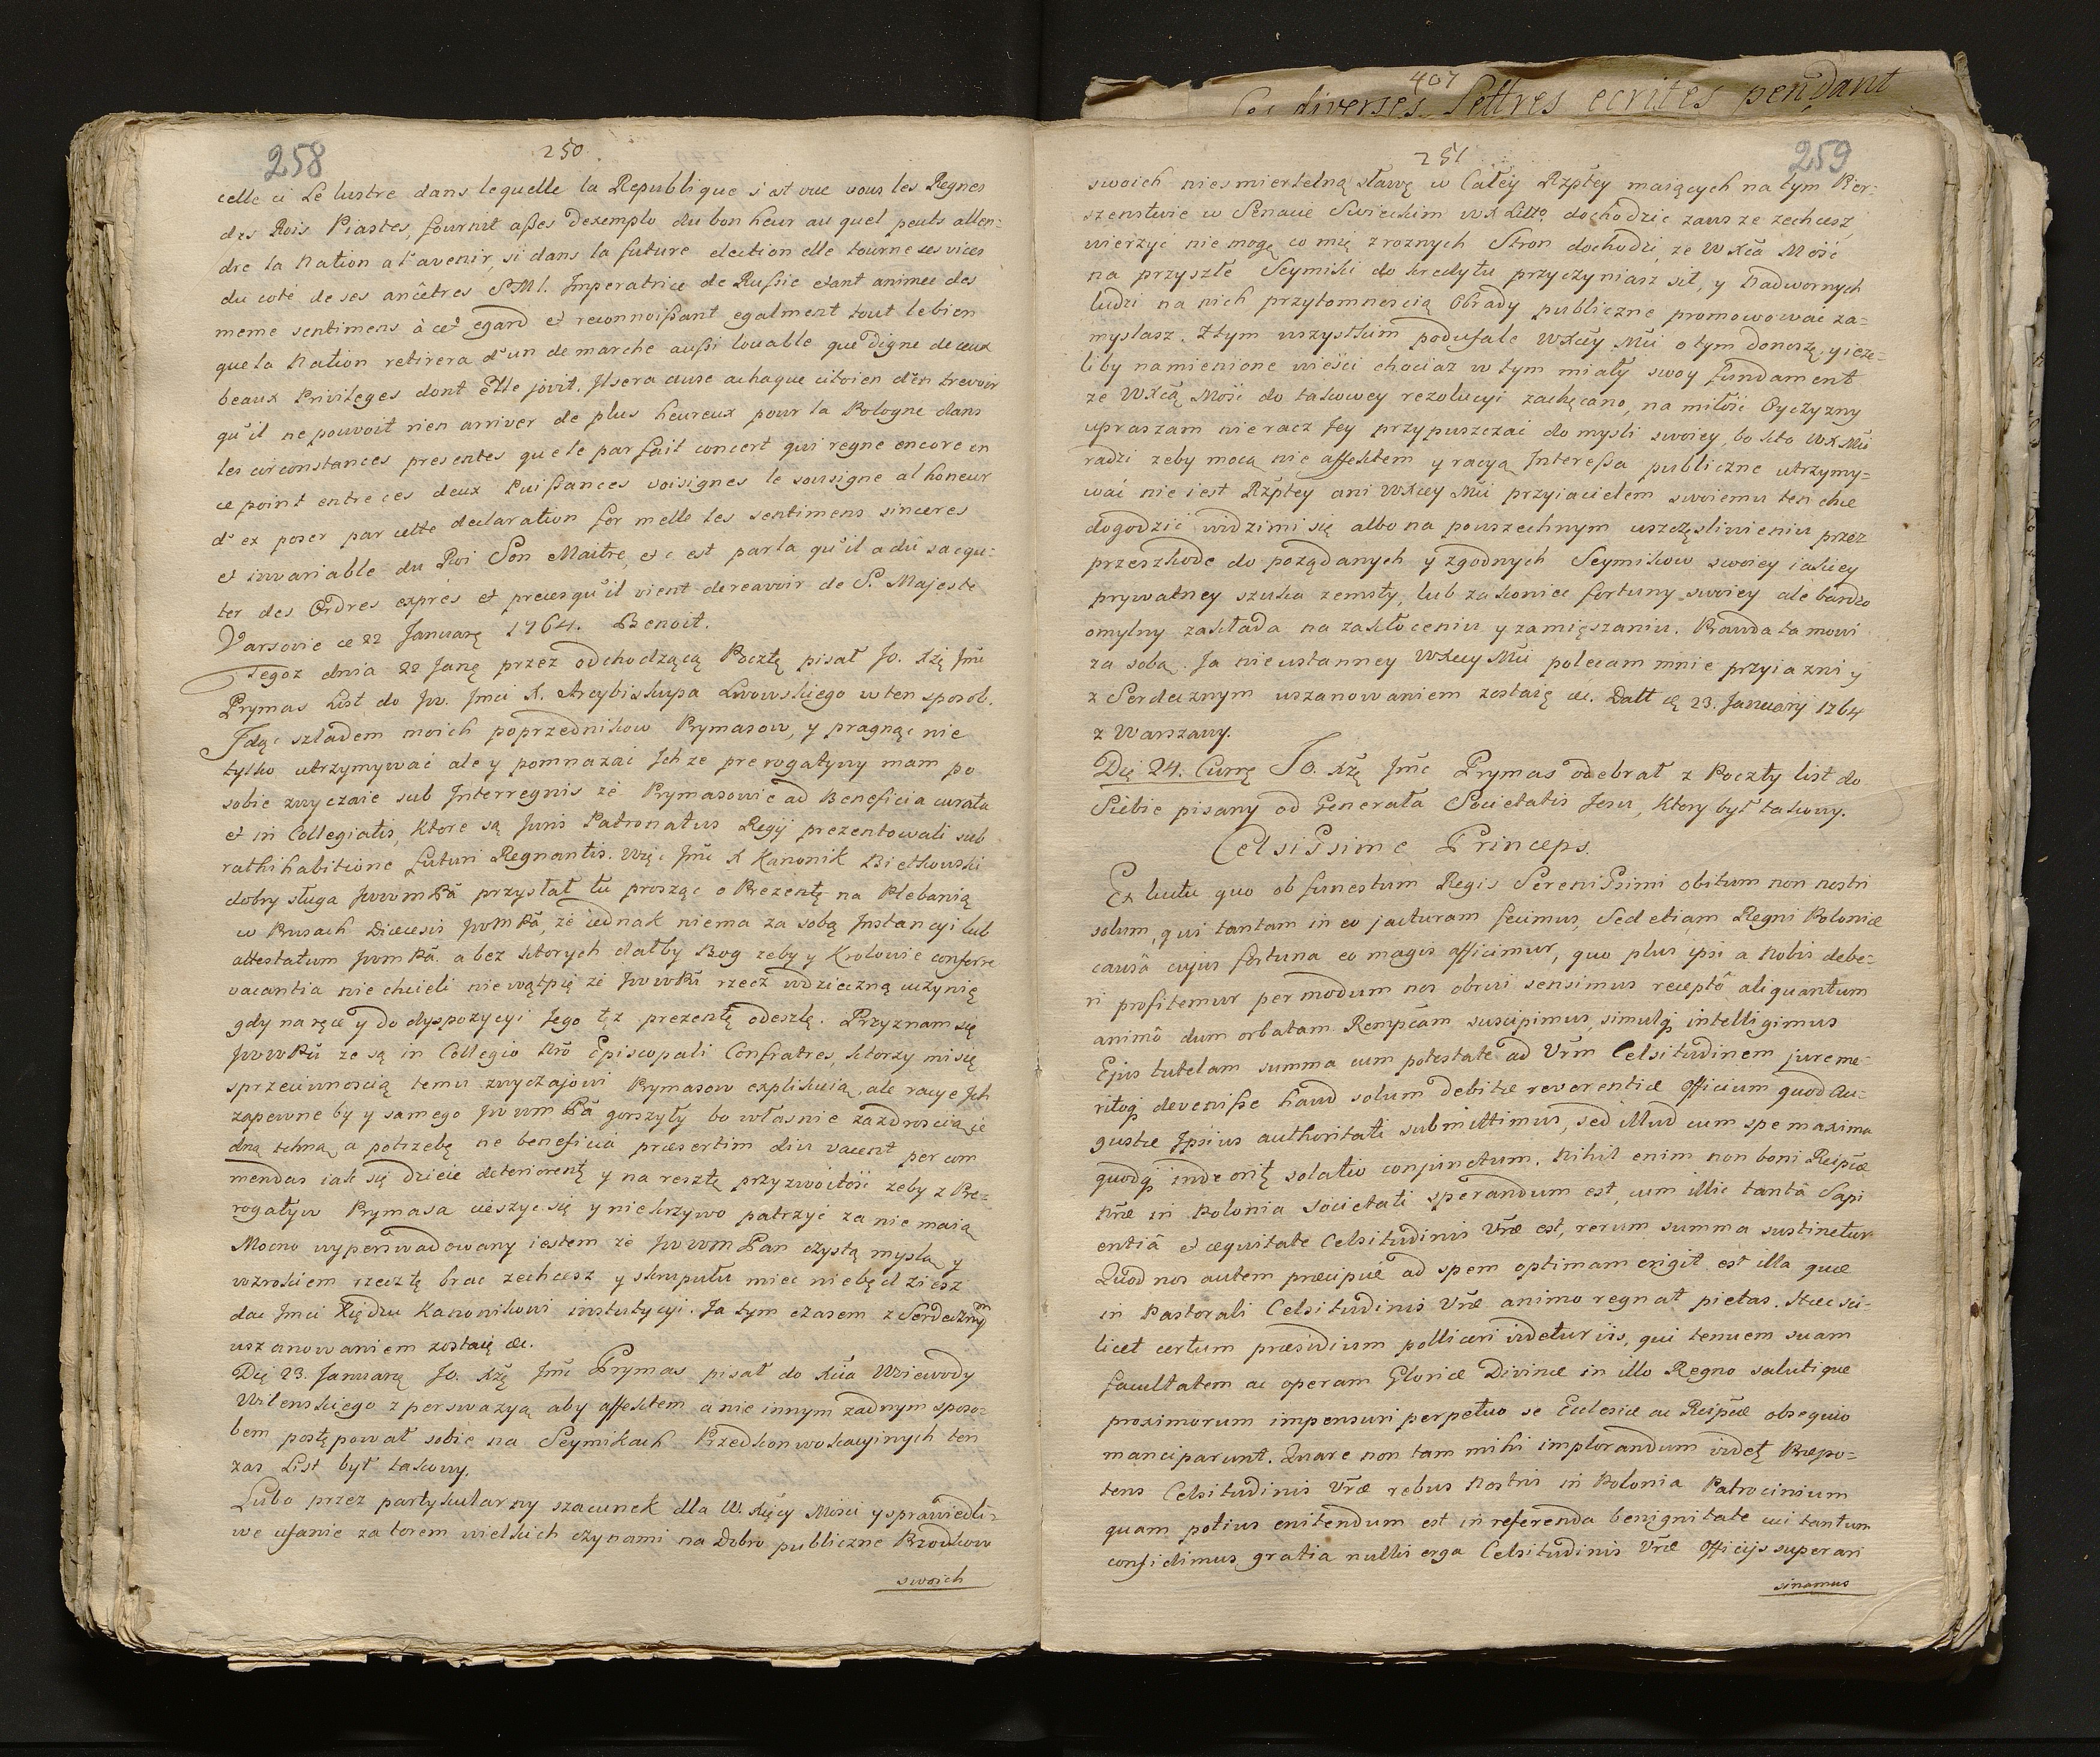 258
250
celle ci Le lustre dans lequelle la Republique s'est vue sous les Regnes
des Rois Piastes, fournit aßes d'exemple du bon heur au quel peuts atten:
dre la Nation a l'avenir, si dans la future election elle tourne ses vües
du coté de ses ancêtres S.M.I. Imperatrice de Rußie etant animée des
meme sentimens à cet egard et reconnoißant egalment tout le bien
que la Nation retirera d'un de marche außi louable que digne de ceux
beaux Privileges dont elle jovit. Il sera aise achaque citoien d'en trevoir
qu'il ne pouvoit rien arriver de plus heureux pour la Pologne dans
les circonstances presentes que le par fait concert qui regne encore en
ce point entre ces deux Puißances voisignes le sousigne al honeur
d'ex poser par cette declaration for melle les sentimens sinceres
et invariable du Roi Son Maitre, et c est par la qu'il a dû sacqui:
ter des Ordres exprés et precis qu'il vient de reavoir de S. Majeste
Varsovie ce 22 Januarę 1764. Benoit.
Tegoz dnia 22 Janę przez odchodzącą Pocztę pisał Jo. Xżę Jmć
Prymas List do Jw. Jmci X. Arcybiskupa Lwowskiego w ten sposob.
Idąc szladem moich poprzednikow Prymasow, y pragnąc nie
tylko utrzymywać ale y pomnazać Ich ze prerogatywy mam po
sobie zwyczaie sub Interregnis że Prymasowie ad Beneficia curata
et in Collegiatis, ktore są Juris Patronatus Regij prezentowali sub
rathihabitione futuri Regnantis. Więc Jmć X Kanonik Bietkowski
dobry sługa JwwmPã przysłał tu prosząc o Prezentę na Plebanią
w Rusach Diæcesis JwmPã, że iednak niema za sobą Instancyi lub
attestatum JwmPã. a bez ktorych dałby Bog zeby y Krolowie conferre
vacantia nie chcieli nie wątpię że JwwPũ rzecz wdzieczną uczynię
gdy na ręce y do dyspozycyi Jego tęz prezentę odeszlę. Przyznam się
JwwPũ ze są in Collegio Nrõ Episcopali Confratres, ktorzy mi się
sprzeciwnoscią temu zwyczajowi Prymasow explikuią, ale racye Ich
zapewne by y samego Jwwm Pã gorszyły bo własnie zazdroscią ie
dną tchną, a potrzebę ne beneficia præsertim diu vacent per com
mendas iak się dzieie deteriorentę y na resztę przyzwoitość zeby z Pre:
rogatyw Prymasa cieszyc się y nie krzywo patrzyć za nie maią
Mocno wyperswadowany iestem że Jwwm Pan czystą myslą y
wzrokiem rzecz tę brac zechcesz y skrupułu miec niebędziesz
dac Jmci Xiędzu Kanonikowi instytucyi. Ja tym czasem z Serdecznym
uszanowaniem zostaię &c.
Dię 23. Januarę Jo. Xżę Jmć Prymas pisał do Xcia Woiewody
Wilenskiego z perswazyą aby affektem a nie innym zadnym sposo:
bem postępował sobie na Seymikach Przedkonwokacyinych ten
zas List był takowy.
Lubo przez partykularny szacunek dla W. Xięcy Mosci y sprawiedli:
we ufanie za torem wielkich czynami na Dobro publiczne Przodkow
swoich
407
diverses Lettres ecrites pendant
259
251
swoich niesmiertelną sławę w Całey Rzptey maiących na tym Kier:
szenstwie w Senacie Swieckim wX Littº dochodzic zawsze zechcesz,
wierzyć nie mogę co mię z roznych Stron dochodzi, ze WXca Mość
na przyszłe Seymiki do kredytu przyczyniasz sił, y Nadwornych
ludzi na nich przytomnością Obrady publiczne promowowac za=
myslasz. Z tym wszystkim podufale WXcey Mci o tym donoszę, y ieze:
liby namienione wieści chociaz w tym miały swoy fundament
ze WXcą Mość do takowey rezolucyi zachęcano, na miłość Oyczyzny
upraszam nieracz Jey przypuszczać do mysli swoiey, bo kto WXMci
radzi zeby mocą nie affektem y racyą Intereßa publiczne utrzymy=
wać nie iest Rzptey ani WXcey Mci przyiacielem swoiemu ten chce
dogodzić widzimi się albo na powszechnym uszczęsliwieniu przez
przeszkode do pożądanych y zgodnych Seymikow swoiey iakiey
prywatney szuka zemsty, lub zakonice fortuny swoiey ale bardzo
omylny zakłada na zakłoceniu y zamięszaniu. Prawda ta mowi
za sobą. Ja nieustanney WXcey Mci polecam mnie przyiazni y
z Serdecznym uszanowaniem zostaię &c. Datt dę 23. Januarij 1764
z Warszawy.
Dię 24. Currę Jo. Xżę Jmć Prymas odebrał z Poczty list do
Siebie pisany od Generała Societatis Jesu, ktory był takowy.
Celsißime Princeps.
Ex luctu quo ob funestum Regis Sereníßimi obitum non nostri
solum, qui tantam in eo jacturam fecimus, Sed etiam Regni Poloniæ
causâ cujus fortuna eo magis afficimur, quo plus ipsi a Nobis debe:
ri profitemur per modum nos obrui sensimus receptô aliquantum
animô dum orbatam Rempcam suscipimus, simulq; intelligimus
Ejus tutelam summa cum potestate ad Vrm Celsitudinem jure me:
ritoq; devenisse haud solum debitæ reverentiæ officium quod Au:
gustæ Ipsius authoritati submittimus, sed illud cum spe maxima
quodq; inde oritę solatio conjunctum. Nihil enim non boni Reipcæ
Nræ in Polonia Societati sperandum est, cum illic tantâ Sapi
entiâ et æquitate Celsitudinis Vræ est, rerum summa sustinetur
Quod nos autem præcipuè ad spem optimam erigit est illa quæ
in Pastorali Celsitudinis Vræ animo regnat pietas. Hæc sci:
licet certum præsidium polliceri videtur iis, qui tenuem suam
facultatem ac operam Gloriæ Divinæ in illo Regno salutique
proximorum impensuri perpetuo se Ecclesiæ ac Reipcæ obsequio
manciparunt. Quare non tam mihi implorandum videtę Præpo=
tens Celsitudinis Vræ rebus Nostris in Polonia Patrocinium
quam potius enitendum est in referenda benignitate cui tantum
confidimus gratia nullis erga Celsitudinis Vræ officijs superari
sinamus